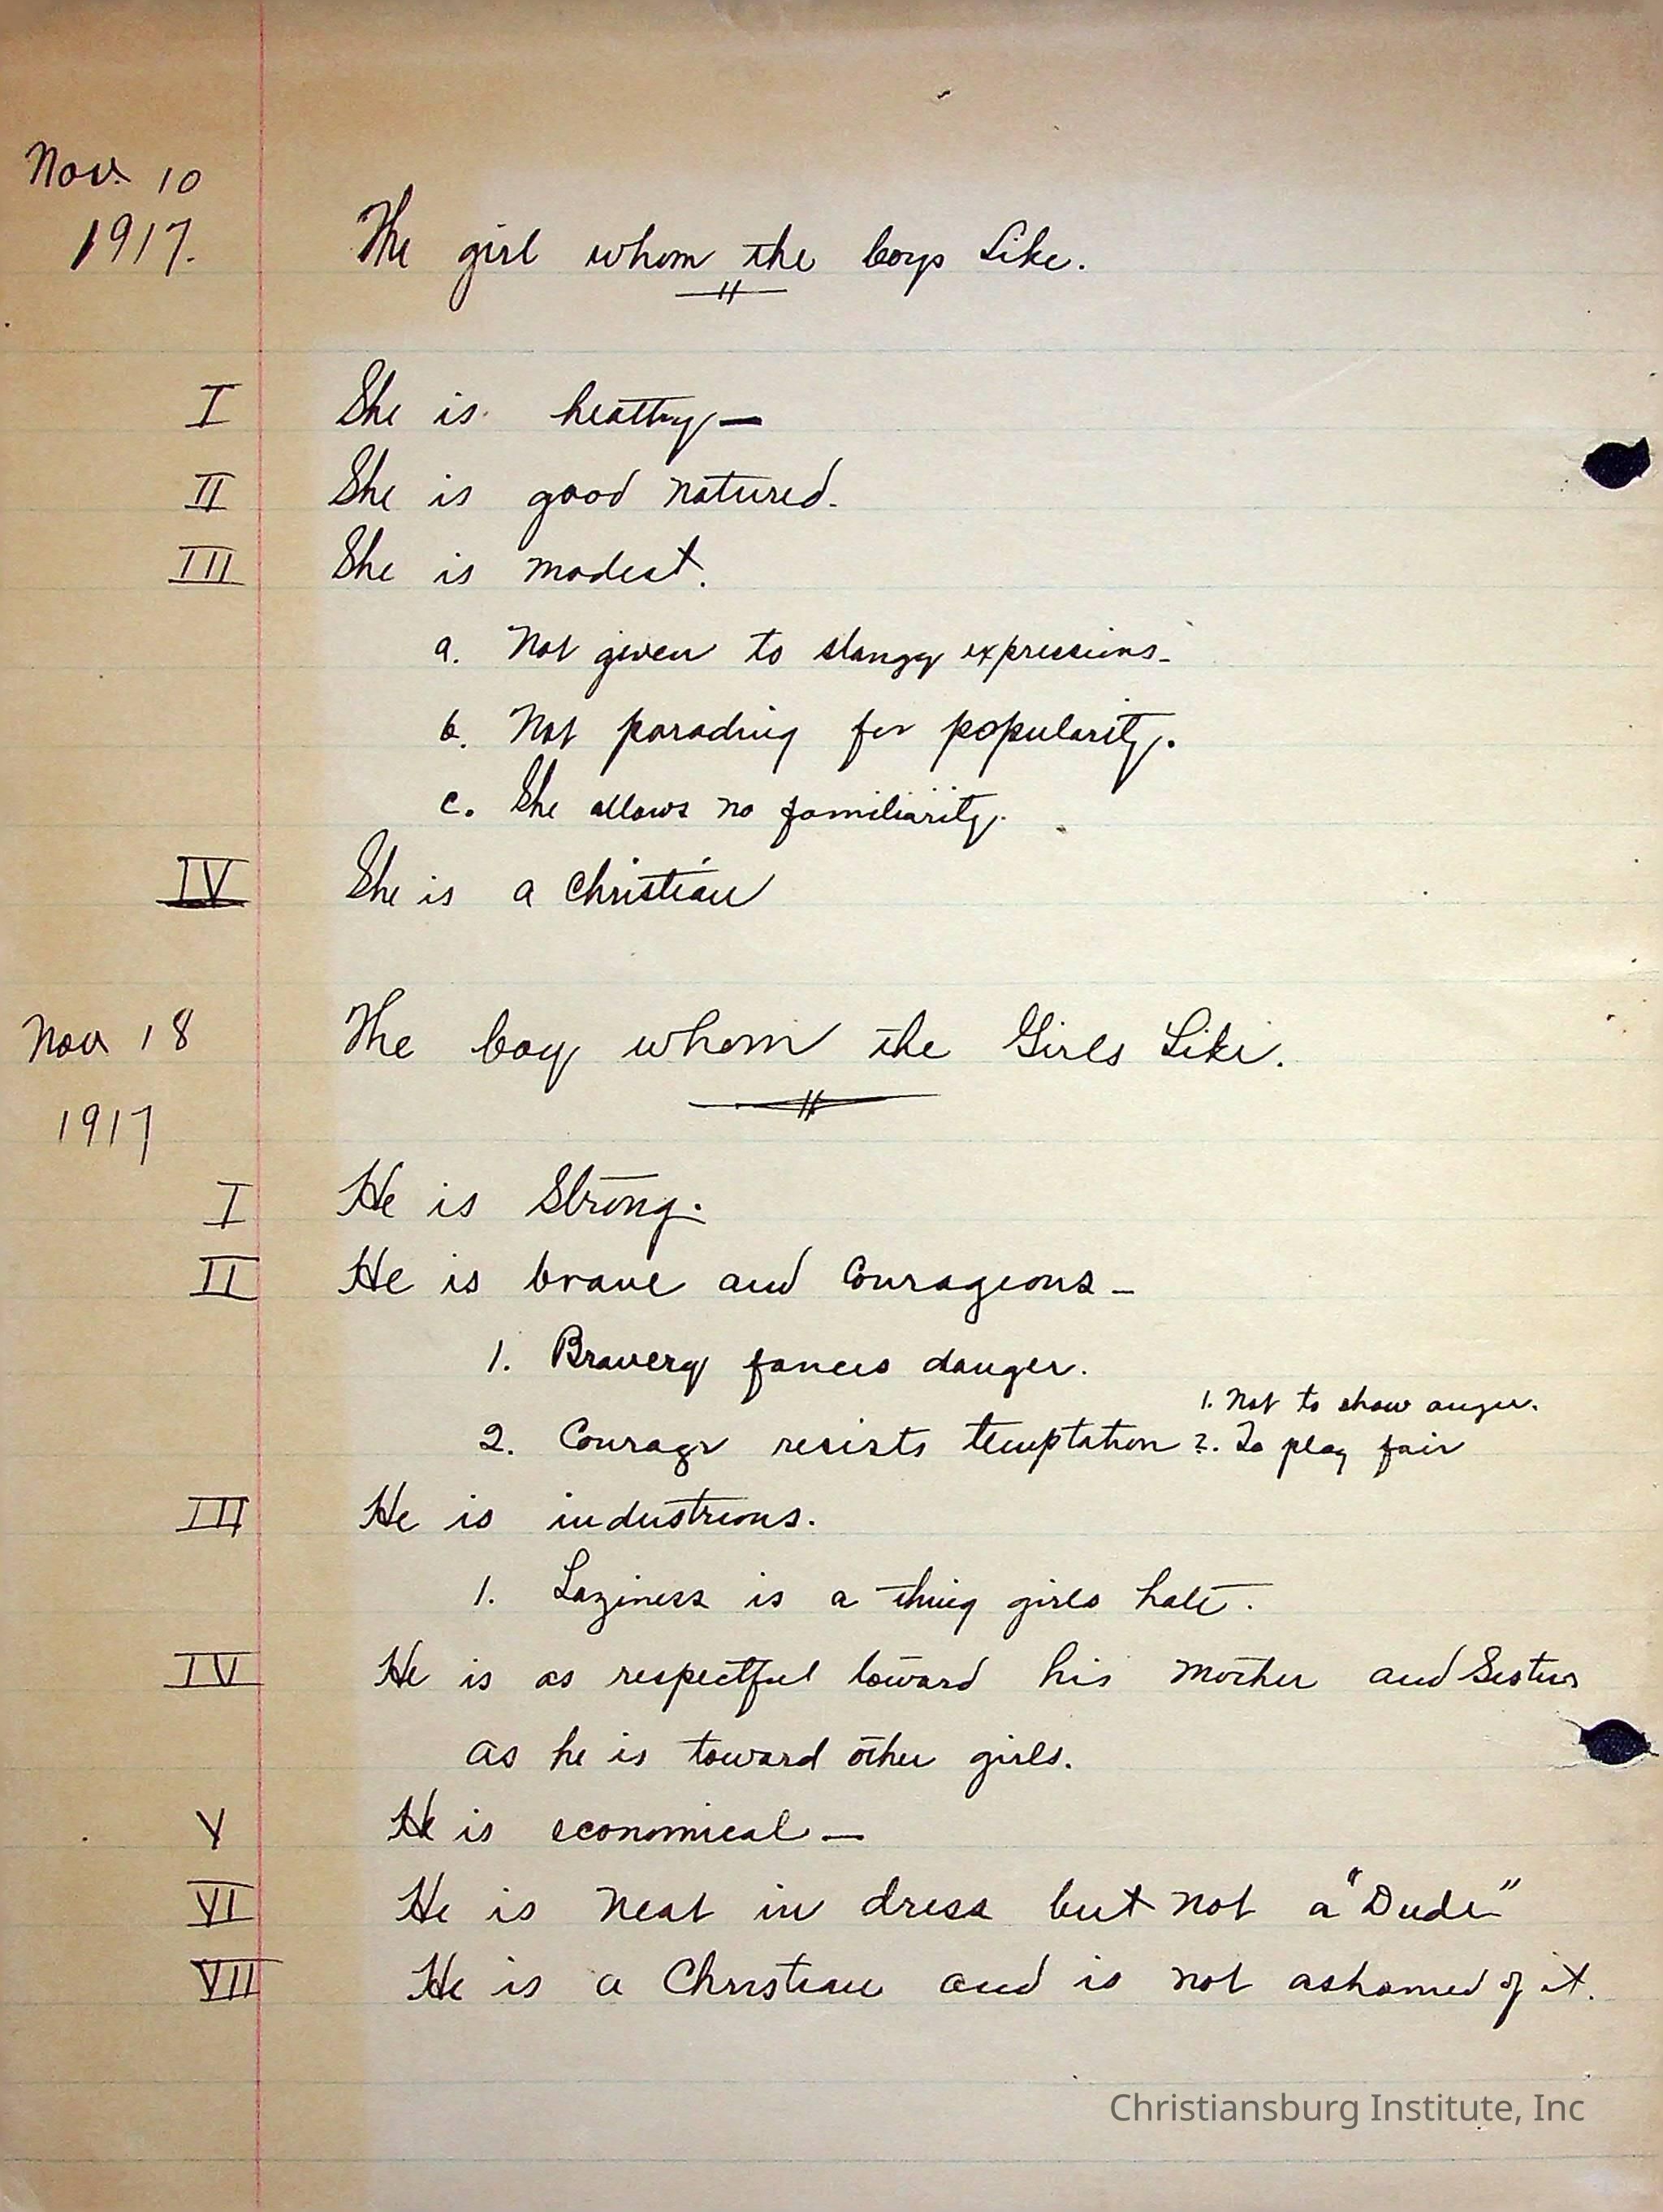 Nov. 10
1917.
The girl whom the boys Like.
I She is healthy—
II She is good natured.
III She is modest.
a. Not given to slangy expressions-
b. Not parading for popularity.
c. She allows no familiarity.
IV She is a Christian
Nov 18
The boy whom the Girls Like.
1917
I He is Strong.
II He is brave and Courageous-
1. Bravery fances danger.
1. Not to show anger.
2. Courage resists temptation 2. To play fair
III He is industrious.
1. Laziness is a thing girls hate.
IV He is as respectful toward his Mother and Sisters
as he is toward other girls.
V He is economical—
VI He is Neat in dress but not a "Dude"
VII He is a Christian and is not ashamed of it.
Christiansburg Institute, Inc